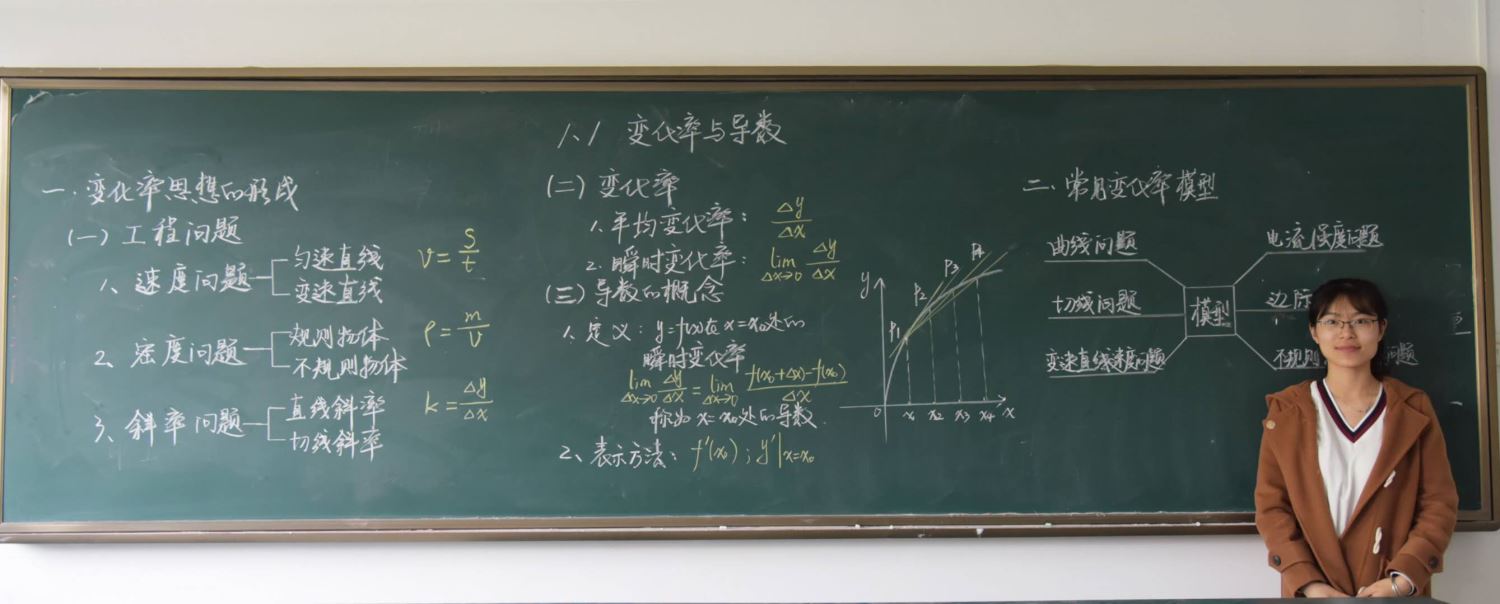 1、1 变化率与导数
一、变化率思想的形成
(一) 工程问题
1、速度问题
匀速直线
变速直线
v = s/t
2、密度问题
规则物体
不规则物体
ρ = m/v
3、斜率问题
直线斜率
切线斜率
k = Δy/Δx
(二) 变化率
1、平均变化率： Δy/Δx
2、瞬时变化率： lim Δx→0 Δy/Δx
(三) 导数的概念
1、定义：y=f(x)在x=x₀处的
瞬时变化率
lim Δx→0 Δy/Δx = lim Δx→0 f(x₀+Δx)-f(x₀)/Δx
称为x=x₀处的导数.
2、表示方法： f′(x₀)；y′|x=x₀
y
P₁
P₂
P₃
P₄
0 x₁ x₂ x₃ x₄ x
二、常用变化率模型
曲线问题
切线问题
变速直线速度问题
模型
电流强度问题
边际
不规则 问题